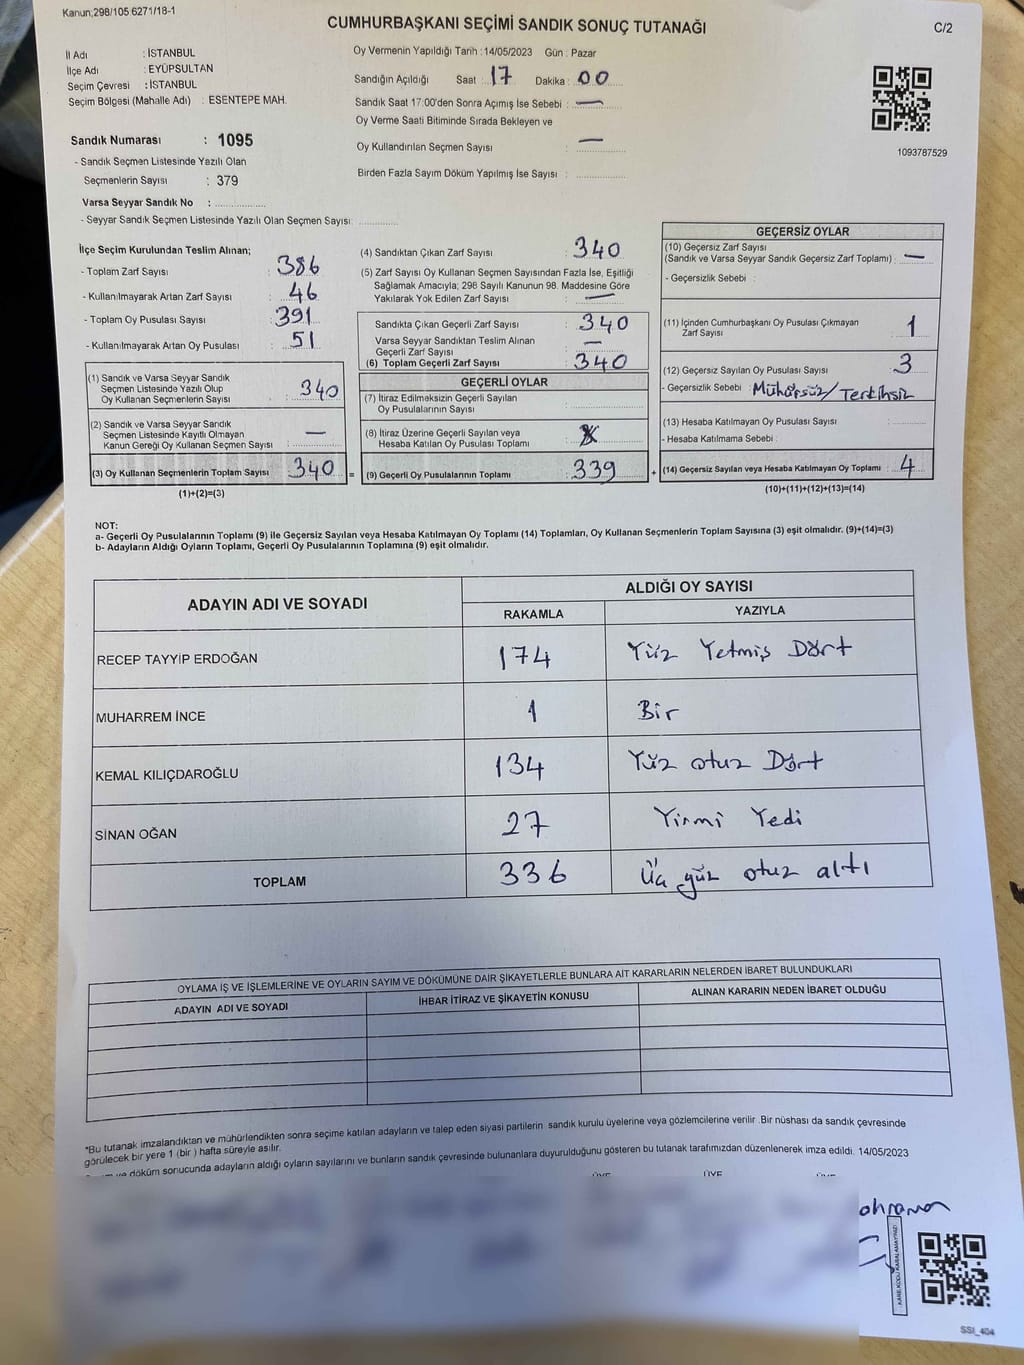 Kanun;298/105 6271/18-1
CUMHURBAŞKANI SEÇİMİ SANDIK SONUÇ TUTANAĞI
C/2
İl Adı : İSTANBUL
İlçe Adı : EYÜPSULTAN
Seçim Çevresi : İSTANBUL
Seçim Bölgesi (Mahalle Adı) : ESENTEPE MAH.
Oy Vermenin Yapıldığı Tarih :14/05/2023 Gün : Pazar
Sandığın Açıldığı Saat : 17 Dakika : 00
Sandık Saat 17:00'den Sonra Açımış İse Sebebi : —
Oy Verme Saati Bitiminde Sırada Bekleyen ve
Oy Kullandırılan Seçmen Sayısı : —
Birden Fazla Sayım Döküm Yapılmış İse Sayısı :
1093787529
Sandık Numarası : 1095
- Sandık Seçmen Listesinde Yazılı Olan
Seçmenlerin Sayısı : 379
Varsa Seyyar Sandık No :
- Seyyar Sandık Seçmen Listesinde Yazılı Olan Seçmen Sayısı:
İlçe Seçim Kurulundan Teslim Alınan;
- Toplam Zarf Sayısı : 386
- Kullanılmayarak Artan Zarf Sayısı : 46
- Toplam Oy Pusulası Sayısı : 391
- Kullanılmayarak Artan Oy Pusulası : 51
(1) Sandık ve Varsa Seyyar Sandık
Seçmen Listesinde Yazılı Olup
Oy Kullanan Seçmenlerin Sayısı : 340
(2) Sandık ve Varsa Seyyar Sandık
Seçmen Listesinde Kayıtlı Olmayan
Kanun Gereği Oy Kullanan Seçmen Sayısı : —
(3) Oy Kullanan Seçmenlerin Toplam Sayısı : 340 =
(1)+(2)=(3)
(4) Sandıktan Çıkan Zarf Sayısı : 340
(5) Zarf Sayısı Oy Kullanan Seçmen Sayısından Fazla İse, Eşitliği
Sağlamak Amacıyla; 298 Sayılı Kanunun 98. Maddesine Göre
Yakılarak Yok Edilen Zarf Sayısı : —
Sandıkta Çıkan Geçerli Zarf Sayısı : 340
Varsa Seyyar Sandıktan Teslim Alınan
Geçerli Zarf Sayısı : —
(6) Toplam Geçerli Zarf Sayısı : 340
GEÇERLİ OYLAR
(7) İtiraz Edilmeksizin Geçerli Sayılan
Oy Pusulalarının Sayısı :
(8) İtiraz Üzerine Geçerli Sayılan veya
Hesaba Katılan Oy Pusulası Toplamı :
(9) Geçerli Oy Pusulalarının Toplamı : 339 +
GEÇERSİZ OYLAR
(10) Geçersiz Zarf Sayısı
(Sandık ve Varsa Seyyar Sandık Geçersiz Zarf Toplamı) : —
- Geçersizlik Sebebi :
(11) İçinden Cumhurbaşkanı Oy Pusulası Çıkmayan
Zarf Sayısı : 1
(12) Geçersiz Sayılan Oy Pusulası Sayısı : 3
- Geçersizlik Sebebi : Mühürsüz/Tercihsiz
(13) Hesaba Katılmayan Oy Pusulası Sayısı :
- Hesaba Katılmama Sebebi :
(14) Geçersiz Sayılan veya Hesaba Katılmayan Oy Toplamı : 4
(10)+(11)+(12)+(13)=(14)
NOT:
a- Geçerli Oy Pusulalarının Toplamı (9) ile Geçersiz Sayılan veya Hesaba Katılmayan Oy Toplamı (14) Toplamları, Oy Kullanan Seçmenlerin Toplam Sayısına (3) eşit olmalıdır. (9)+(14)=(3)
b- Adayların Aldığı Oyların Toplamı, Geçerli Oy Pusulalarının Toplamına (9) eşit olmalıdır.
ADAYIN ADI VE SOYADI
ALDIĞI OY SAYISI
RAKAMLA YAZIYLA
RECEP TAYYİP ERDOĞAN 174 Yüz Yetmiş Dört
MUHARREM İNCE 1 Bir
KEMAL KILIÇDAROĞLU 134 Yüz otuz Dört
SİNAN OĞAN 27 Yirmi Yedi
TOPLAM 336 Üç yüz otuz altı
OYLAMA İŞ VE İŞLEMLERİNE VE OYLARIN SAYIM VE DÖKÜMÜNE DAİR ŞİKAYETLERLE BUNLARA AİT KARARLARIN NELERDEN İBARET BULUNDUKLARI
ADAYIN ADI VE SOYADI İHBAR İTİRAZ VE ŞİKAYETİN KONUSU ALINAN KARARIN NEDEN İBARET OLDUĞU
*Bu tutanak imzalandıktan ve mühürlendikten sonra seçime katılan adayların ve talep eden siyasi partilerin sandık kurulu üyelerine veya gözlemcilerine verilir .Bir nüshası da sandık çevresinde
görülecek bir yere 1 (bir ) hafta süreyle asılır.
ve döküm sonucunda adayların aldığı oyların sayılarını ve bunların sandık çevresinde bulunanlara duyurulduğunu gösteren bu tutanak tarafımızdan düzenlenerek imza edildi. 14/05/2023
ÜYE ÜYE ÜYE
KARE KODU KARALAMAYINIZ!
SSI_404